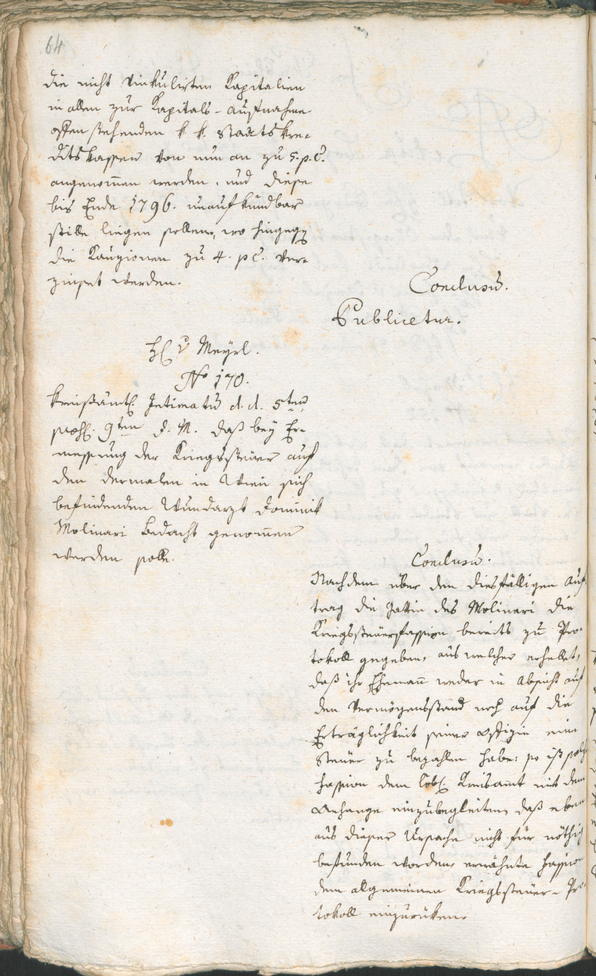 64
die nicht vinkulirten Kapitalien
in allen zur Kapitals-aufnahme
offen stehenden k. k. Staatskre-
ditskassen von nun an zu 5. p. C.
angenommen werden, und diese
bis Ende 1796. unaufkündbar
stille liegen sollen, wo hingegen
die Kauzionen zu 4. p C. ver-
zinset werden.
Conclusum.
Publicetur.
H v Mayrl.
No 170.
Kreisämtl. Intimatum d. d. 5ten
präs. 9ten d. M. daß bey Er-
messung der Kriegssteuer auf
den dermalen in Wien sich
befindenden Wundarzt Dominik
Molinari Bedacht genommen
werden solle.
Conclusum.
Nachdem über den diesfälligen Auf-
trag die Gattin des Molinari die
Kriegssteuersfassion bereits zu Pro-
tokoll gegeben, aus welcher erhellet,
daß ihr Ehemann weder in Absicht auf
den Vermögensstand noch auf die
Erträglichkeit seiner Offizin eine
Steuer zu bezahlen habe: so ist solche
Fassion dem löbl. Kreisamt mit dem
Anhange einzubegleiten, daß eben
aus dieser Ursache nicht für nöthig
befunden worden, erwähnte Fassion
dem allgemeinen Kriegssteuer-Pro-
tokoll einzurüken.